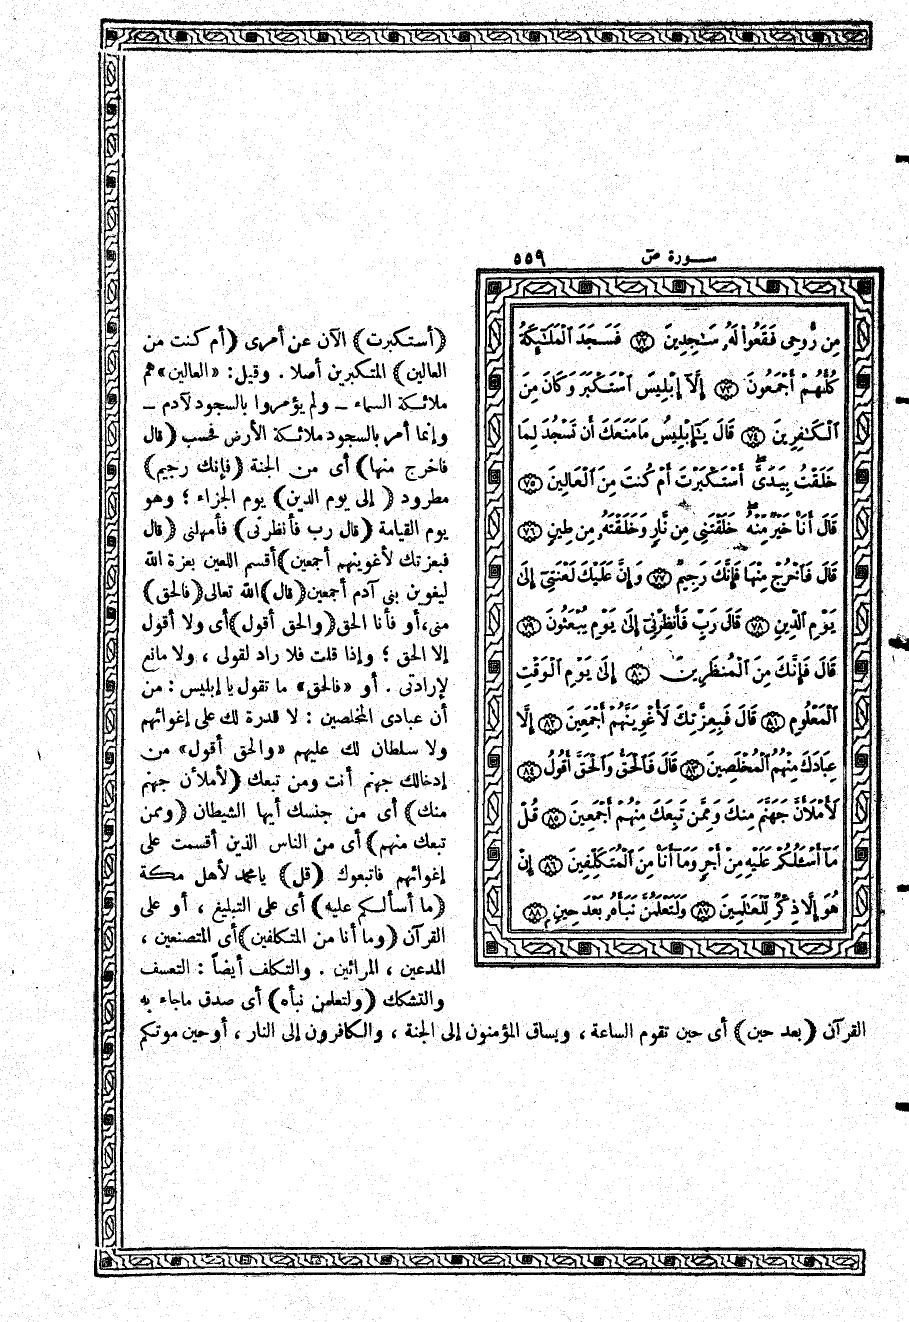 سورة ص ٥٥٩
مِن رُّوحِى فَقَعُوا۟ لَهُۥ سَـٰجِدِينَ ٧٢ فَسَجَدَ ٱلْمَلَـٰٓئِكَةُ
كُلُّهُمْ أَجْمَعُونَ ٧٣ إِلَّآ إِبْلِيسَ ٱسْتَكْبَرَ وَكَانَ مِنَ
ٱلْكَـٰفِرِينَ ٧٤ قَالَ يَـٰٓإِبْلِيسُ مَا مَنَعَكَ أَن تَسْجُدَ لِمَا
خَلَقْتُ بِيَدَىَّ أَسْتَكْبَرْتَ أَمْ كُنتَ مِنَ ٱلْعَالِينَ ٧٥
قَالَ أَنَا۠ خَيْرٌ مِّنْهُ خَلَقْتَنِى مِن نَّارٍ وَخَلَقْتَهُۥ مِن طِينٍ ٧٦
قَالَ فَٱخْرُجْ مِنْهَا فَإِنَّكَ رَجِيمٌ ٧٧ وَإِنَّ عَلَيْكَ لَعْنَتِىٓ إِلَىٰ
يَوْمِ ٱلدِّينِ ٧٨ قَالَ رَبِّ فَأَنظِرْنِىٓ إِلَىٰ يَوْمِ يُبْعَثُونَ ٧٩
قَالَ فَإِنَّكَ مِنَ ٱلْمُنظَرِينَ ٨٠ إِلَىٰ يَوْمِ ٱلْوَقْتِ
ٱلْمَعْلُومِ ٨١ قَالَ فَبِعِزَّتِكَ لَأُغْوِيَنَّهُمْ أَجْمَعِينَ ٨٢ إِلَّا
عِبَادَكَ مِنْهُمُ ٱلْمُخْلَصِينَ ٨٣ قَالَ فَٱلْحَقُّ وَٱلْحَقَّ أَقُولُ ٨٤
لَأَمْلَأَنَّ جَهَنَّمَ مِنكَ وَمِمَّن تَبِعَكَ مِنْهُمْ أَجْمَعِينَ ٨٥ قُلْ
مَآ أَسْـَٔلُكُمْ عَلَيْهِ مِنْ أَجْرٍ وَمَآ أَنَا۠ مِنَ ٱلْمُتَكَلِّفِينَ ٨٦ إِنْ
هُوَ إِلَّا ذِكْرٌ لِّلْعَـٰلَمِينَ ٨٧ وَلَتَعْلَمُنَّ نَبَأَهُۥ بَعْدَ حِينٍۭ ٨٨
(أستكبرت) الآن عن أمرى (أم كنت من
العالين) المتكبرين أصلا . وقيل: «العالين» هم
ملائكة السماء ــ ولم يؤمروا بالسجود لآدم ــ
وإنما أمر بالسجود ملائكة الأرض فحسب (قال
فاخرج منها) أى من الجنة (فإنك رجيم)
مطرود (إلى يوم الدين) يوم الجزاء ؛ وهو
يوم القيامة (قال رب فأنظرنى) فأمهلنى (قال
فبعزتك لأغوينهم أجمعين) أقسم اللعين بعزة الله
ليغوين بنى آدم أجمعين (قال) الله تعالى (فالحق)
منى، أو فأنا الحق (والحق أقول) أى ولا أقول
إلا الحق ؛ وإذا قلت فلا راد لقولى ، ولا مانع
لإرادتى . أو «فالحق» ما تقول يا إبليس : من
أن عبادى المخلصين : لا قدرة لك على إغوائهم
ولا سلطان لك عليهم «والحق أقول» من
إدخالك جهنم أنت ومن تبعك (لأملأن جهنم
منك) أى من جنسك أيها الشيطان (وممن
تبعك منهم) أى من الناس الذين أقسمت على
إغوائهم فاتبعوك (قل) يا محمد لأهل مكة
(ما أسألكم عليه) أى على التبليغ ، أو على
القرآن (وما أنا من المتكلفين) أى المتصنعين ،
المدعين ، المرائين . والتكلف أيضاً : التعسف
والتشكك (ولتعلمن نبأه) أى صدق ما جاء به
القرآن (بعد حين) أى حين تقوم الساعة ، ويساق المؤمنون إلى الجنة ، والكافرون إلى النار ، أو حين موتكم